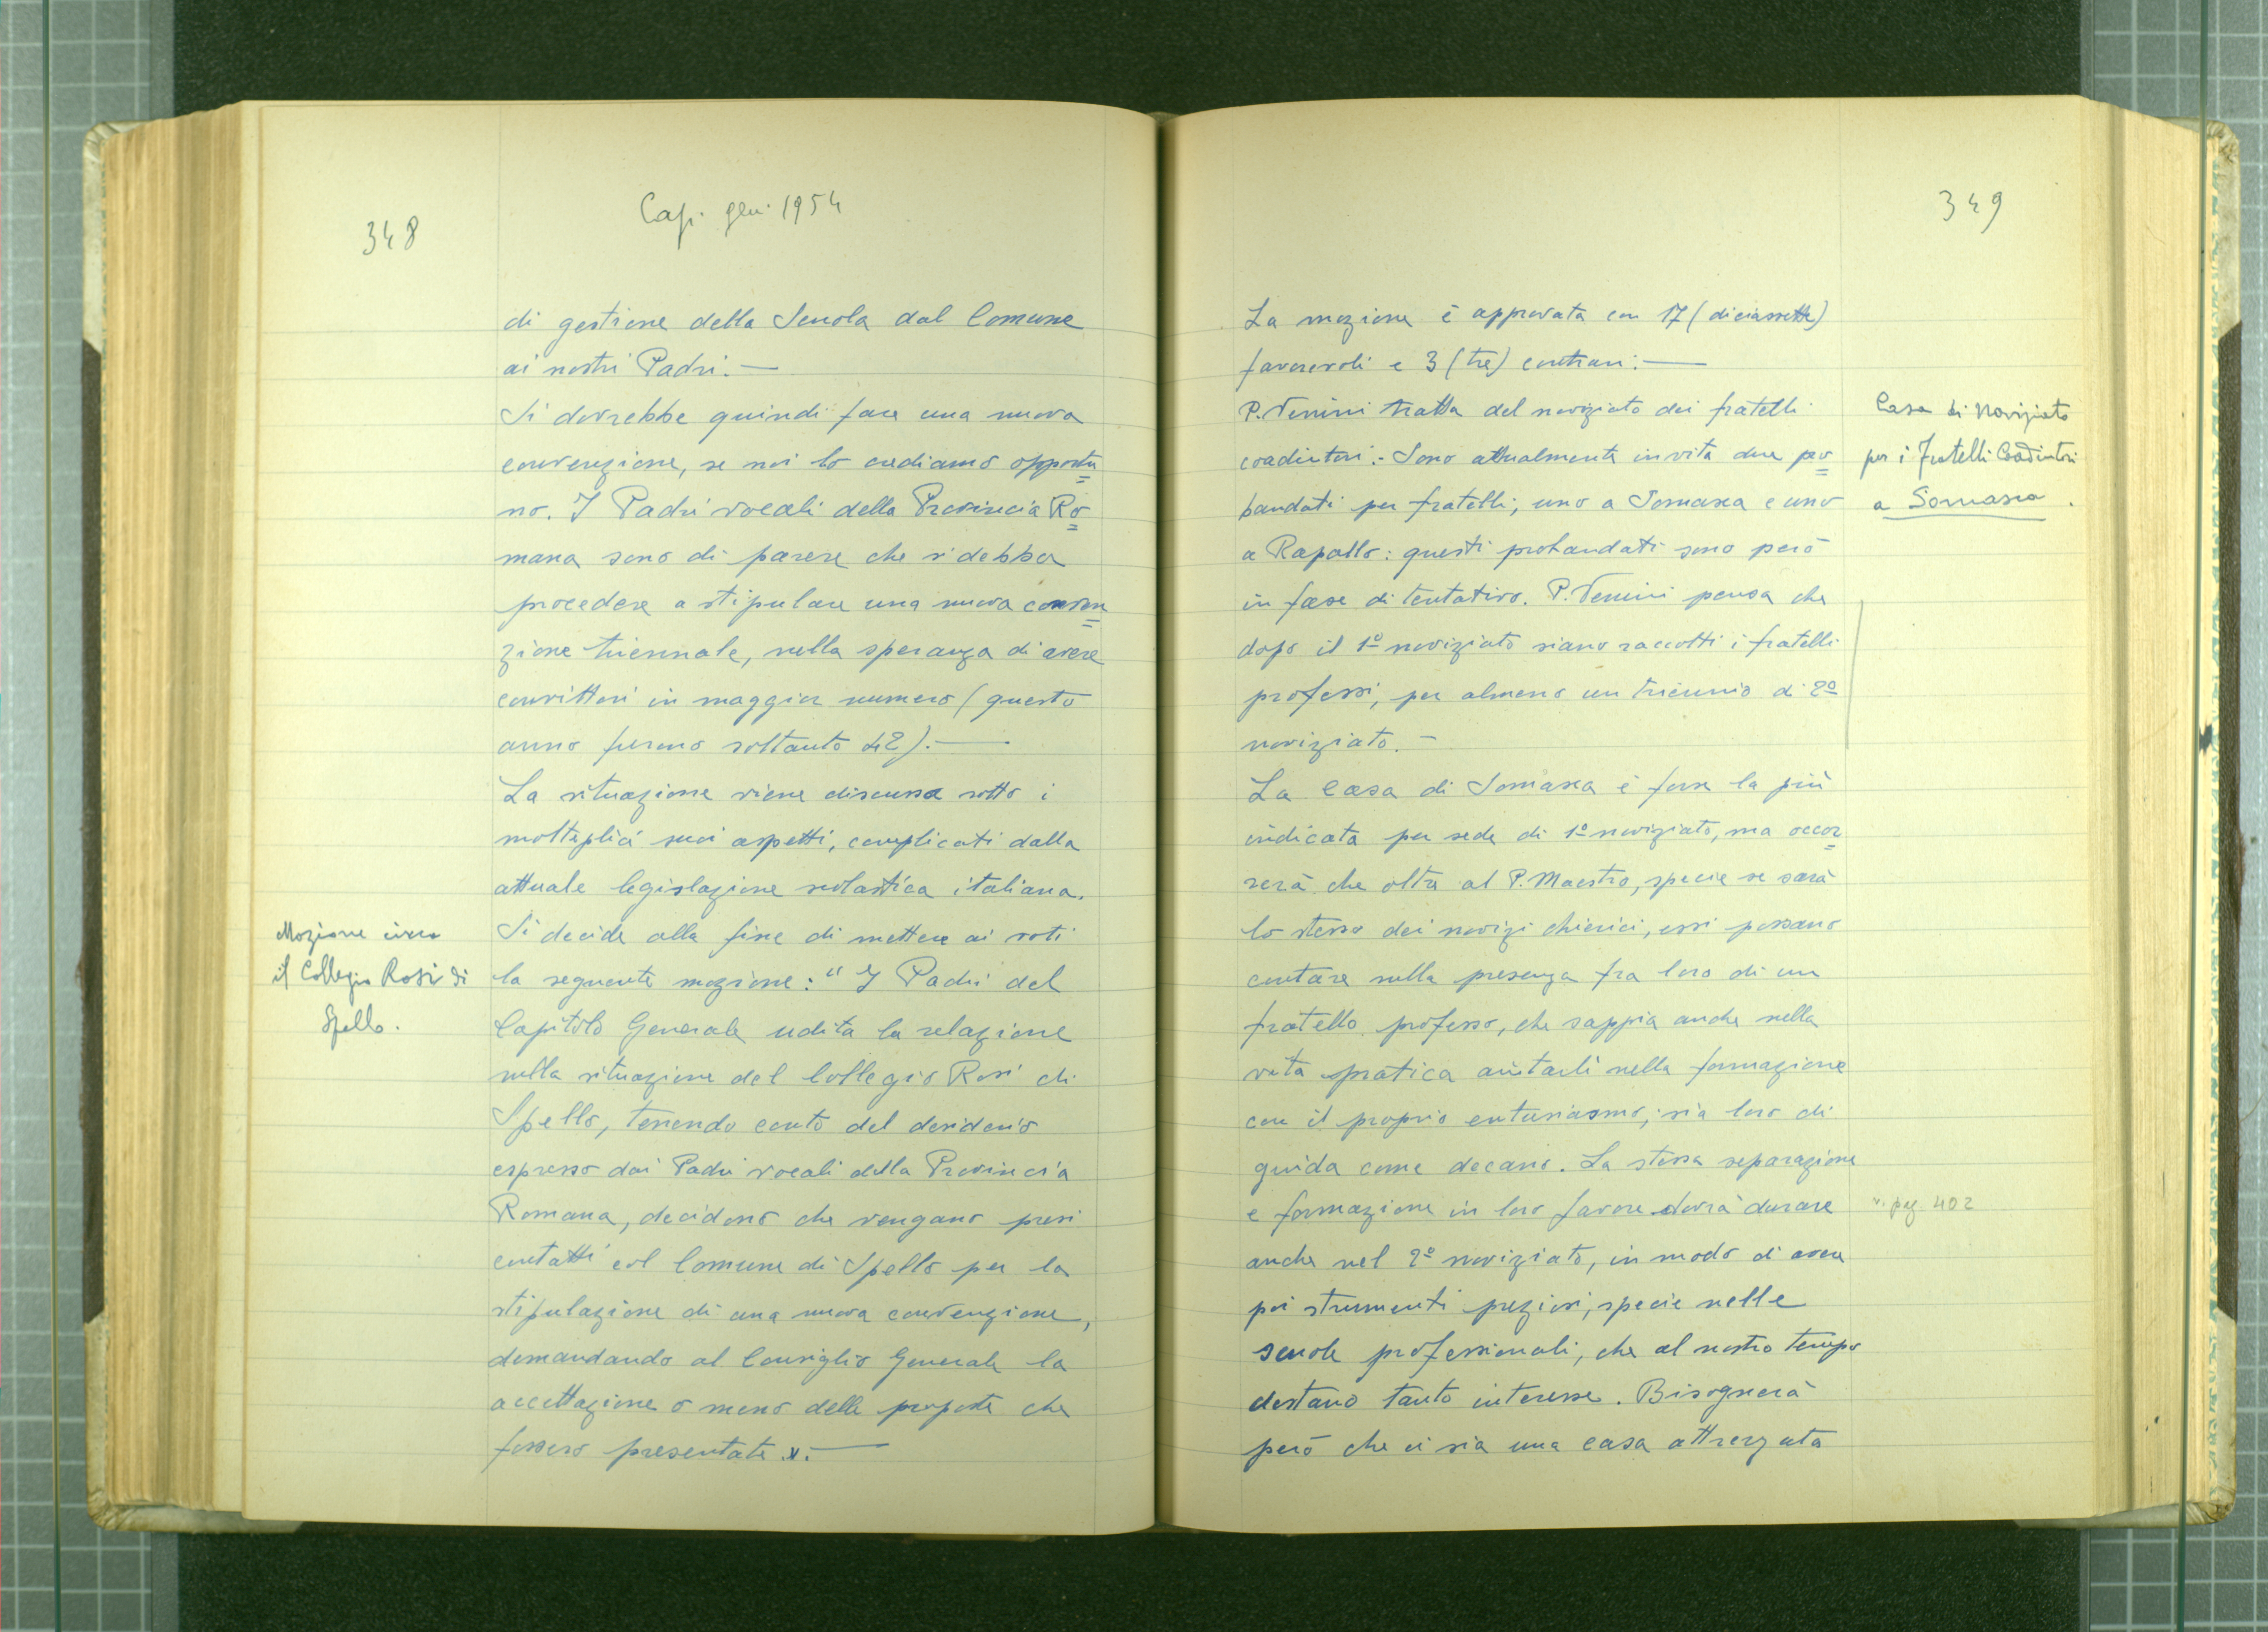 348
Cap. gen. 1954
di gestione della Scuola dal Comune
ai nostri Padri.—
Si dovrebbe quindi fare una nuova
convenzione, se noi lo crediamo opportu=
no. I Padri vocali della Provincia Ro=
mana sono di parere che si debba
procedere a stipulare una nuova conven=
zione triennale, nella speranza di avere
convittori in maggior numero (questo
anno furono soltanto 42).—
La situazione viene discussa sotto i
molteplici suoi aspetti, complicati dalla
attuale legislazione scolastica italiana.
Mozione circa
il Collegio Rosi di
Spello.
Si decide alla fine di mettere ai voti
la seguente mozione: "I Padri del
Capitolo Generale udita la relazione
sulla situazione del Collegio Rosi di
Spello, tenendo conto del desiderio
espresso dai Padri vocali della Provincia
Romana, decidono che vengano presi
contatti col Comune di Spello per la
stipulazione di una nuova convenzione,
demandando al Consiglio Generale la
accettazione o meno delle proposte che
fossero presentate".—
349
La mozione è approvata con 17 (diciassette)
favorevoli e 3 (tre) contrari.—
P. Venini tratta del noviziato dei fratelli
coadiutori.- Sono attualmente in vita due pro=
bandati per fratelli, uno a Somasca e uno
a Rapallo: questi probandati sono però
in fase di tentativo. P. Venini pensa che
dopo il 1º noviziato siano raccolti i fratelli
professi, per almeno un triennio di 2º
noviziato.-
Casa di Noviziato
per i Fratelli Coadiutori
a Somasca.
La Casa di Somasca è forse la più
indicata per sede di 1º noviziato, ma occor=
rerà che oltre al P. Maestro, specie se sarà
lo stesso dei novizi chierici, essi possano
contare sulla presenza fra loro di un
fratello professo, che sappia anche nella
vita pratica aiutarli nella formazione
con il proprio entusiasmo, sia loro di
guida come decano. La stessa separazione
e formazione in loro favore dovrà durare
v. pag. 402
anche nel 2º noviziato, in modo di avere
poi strumenti preziosi, specie nelle
scuole professionali, che al nostro tempo
destano tanto interesse. Bisognerà
però che ci sia una casa attrezzata